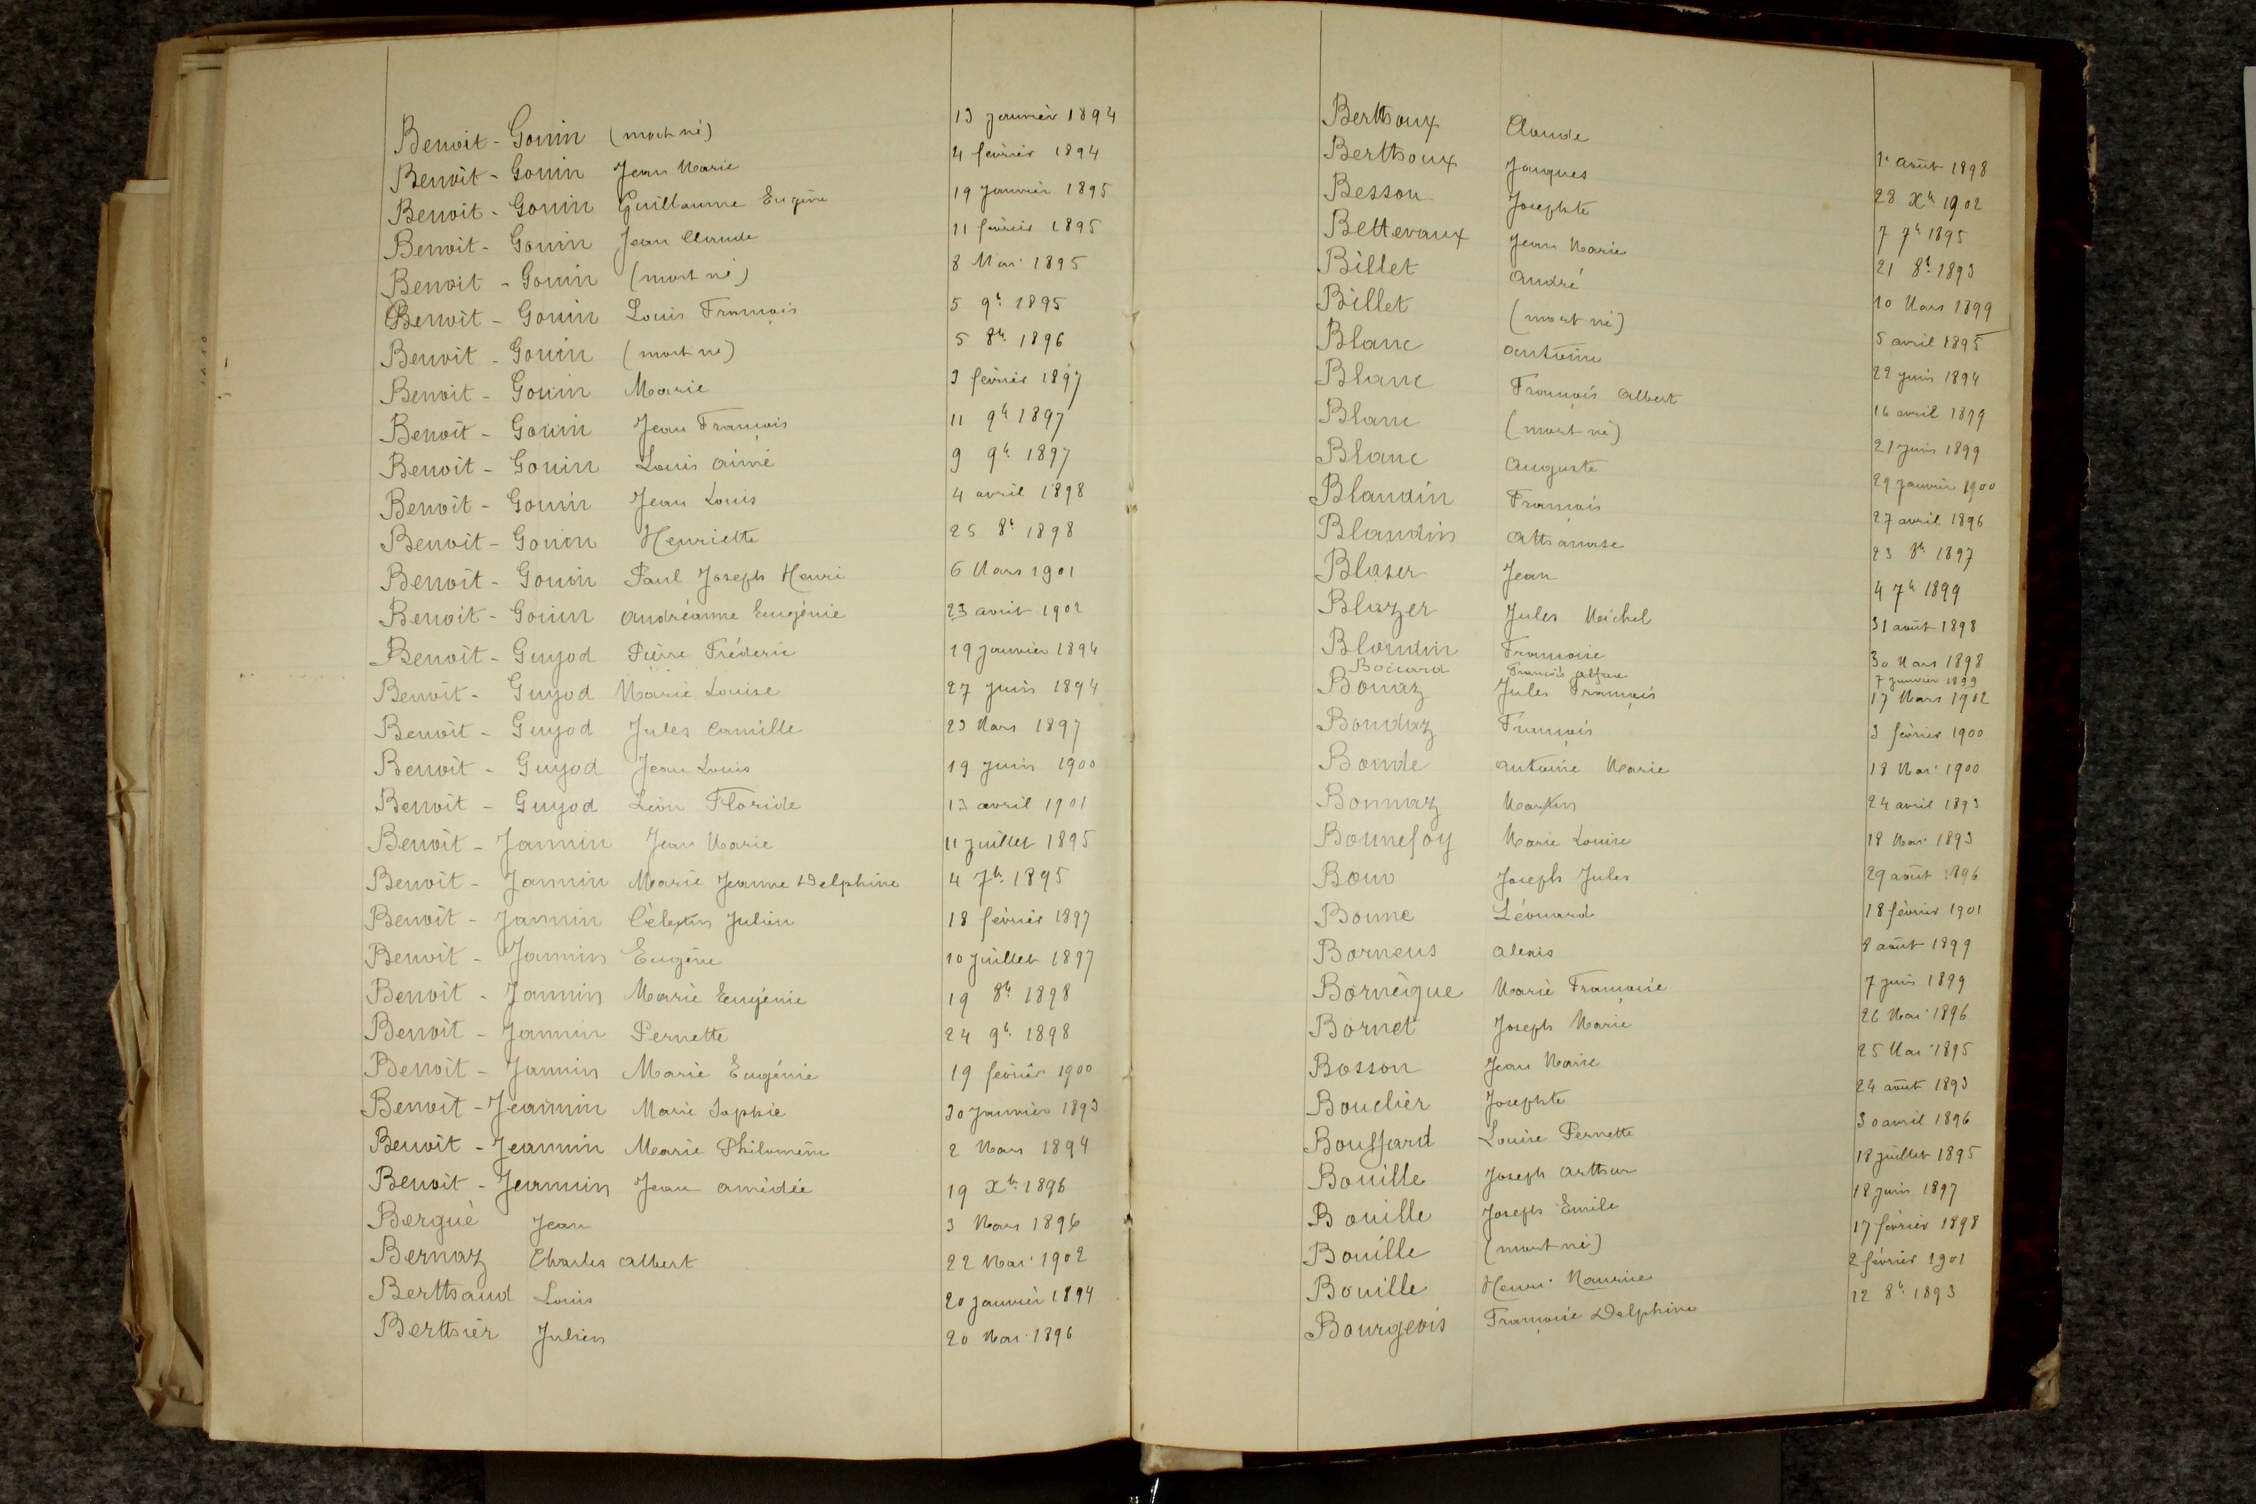 Benoit - Gouin (mort né) 13 janvier 1894
Benoit - Gouin Jean Marie 4 février 1894
Benoit - Gouin Guillaume Eugène 19 janvier 1895
Benoit - Gouin Jean Claude 11 février 1895
Benoit - Gouin (mort né) 8 Mai 1895
Benoit - Gouin Louis François 5 9b 1895
Benoit - Gouin (mort né) 5 8b 1896
Benoit - Gouin Marie 3 février 1897
Benoit - Gouin Jean François 11 9b 1897
Benoit - Gouin Louis aimé 9 9b 1897
Benoit - Gouin Jean Louis 4 avril 1898
Benoit - Gouin Henriette 25 8b 1898
Benoit - Gouin Paul Joseph Henri 6 Mars 1901
Benoit - Gouin andréanne Eugénie 23 août 1902
Benoit - Guyod Pierre Fréderic 19 janvier 1894
Benoit - Guyod Marie Louise 27 juin 1894
Benoit - Guyod Jules Camille 23 Mars 1897
Benoit - Guyod Jean Louis 19 juin 1900
Benoit - Guyod Léon Floride 13 avril 1901
Benoit - Jannin Jean Marie 11 juillet 1895
Benoit - Jannin Marie Jeanne Delphine 4 7b 1895
Benoit - Jannin Célestin Julien 18 février 1897
Benoit - Jannin Eugène 10 juillet 1897
Benoit - Jannin Marie Eugénie 19 8b 1898
Benoit - Jannin Pernette 24 9b 1898
Benoit - Jannin Marie Eugénie 19 février 1900
Benoit - Jeannin Marie Sophie 30 janvier 1893
Benoit - Jeannin Marie Philomène 2 Mars 1894
Benoit - Jeannin Jean amédée 19 Xb 1896
Bergué Jean 3 Mars 1896
Bernaz Charles albert 22 Mai 1902
Berthaud Louis 20 janvier 1894
Berthier Julien 20 Mai 1896
Berthoux Claude 1er août 1898
Berthoux Jacques 28 Xb 1902
Besson Josephte 7 7b 1895
Bettevaux Jean Marie 21 8b 1893
Billet andré 10 Mars 1899
Billet (mort né) 5 avril 1895
Blanc antoine 22 juin 1894
Blanc François albert 16 avril 1899
Blanc (mort né) 21 juin 1899
Blanc auguste 29 janvier 1900
Blandin François 27 avril 1896
Blandin athanase 23 8b 1897
Blaser Jean 4 7b 1899
Blazer Jules Michel 31 août 1898
Blondin Françoise 30 Mars 1898
Boccard François 7 janvier 1899
Bouaz Jules François 17 Mars 1902
Bondaz François 3 février 1900
Bonde antoine Marie 18 Mai 1900
Bonnaz Martin 24 avril 1893
Bonnefoy Marie Louise 18 Mai 1893
Joseph Jules 29 août 1896
Bonne Léonard 18 février 1901
Borneus alexis 8 août 1899
Bornèque Marie Françoise 7 juin 1899
Bornet Joseph Marie 26 Mai 1896
Bosson Jean Marie 25 Mai 1895
Bouclier Josephte 24 août 1893
Bouffard Louise Pernette 30 avril 1896
Bouille Joseph arthur 18 juillet 1895
Bouille Joseph Emile 18 juin 1897
Bouille (mort né) 17 février 1898
Bouille Henri Maurice 2 février 1901
Bourgeois Françoise Delphine 12 8b 1893